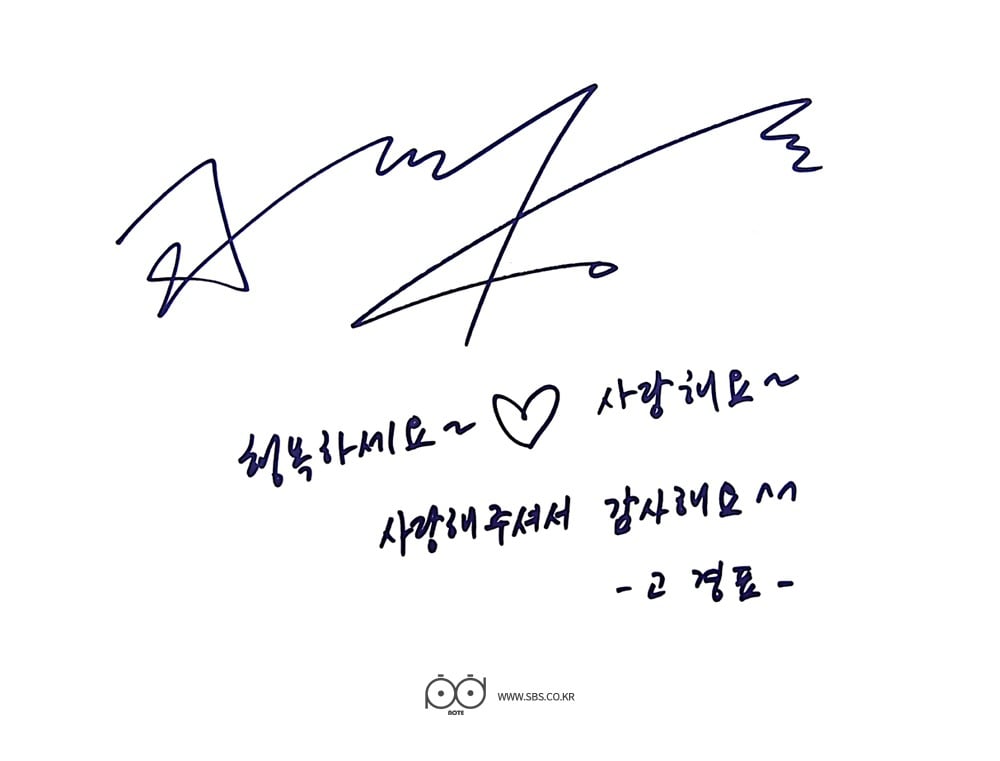 행복하세요~ ♡ 사랑해요~
사랑해주셔서 감사해요^^
- 고경표 -
NOTE
WWW.SBS.CO.KR